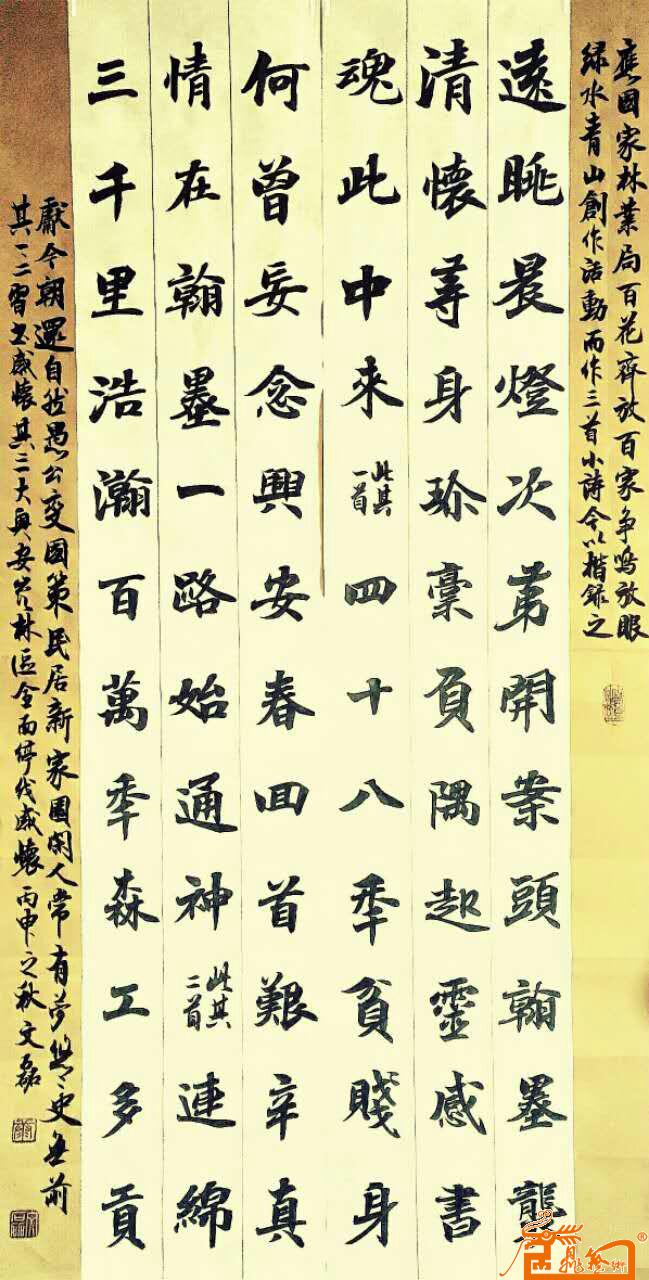 應國家林業局百花齊放百家争鸣放眼
绿水青山創作活動而作三首小詩今以楷録之
遠眺晨燈次第開案頭翰墨龔
清懷等身珎毫負隅起靈感書
魂此中來此其一首四十八秊貧賤身
何曾妄念興安春回首艱辛真
情在翰墨一路始通神此其二首連綿
三千里浩瀚百萬秊森工多貢
獻今朝還自然愚公变國策民居新家園闲人常有夢史無前
其一二習书感懷其三大興安岭林區全面停伐感懷丙申之秋文磊